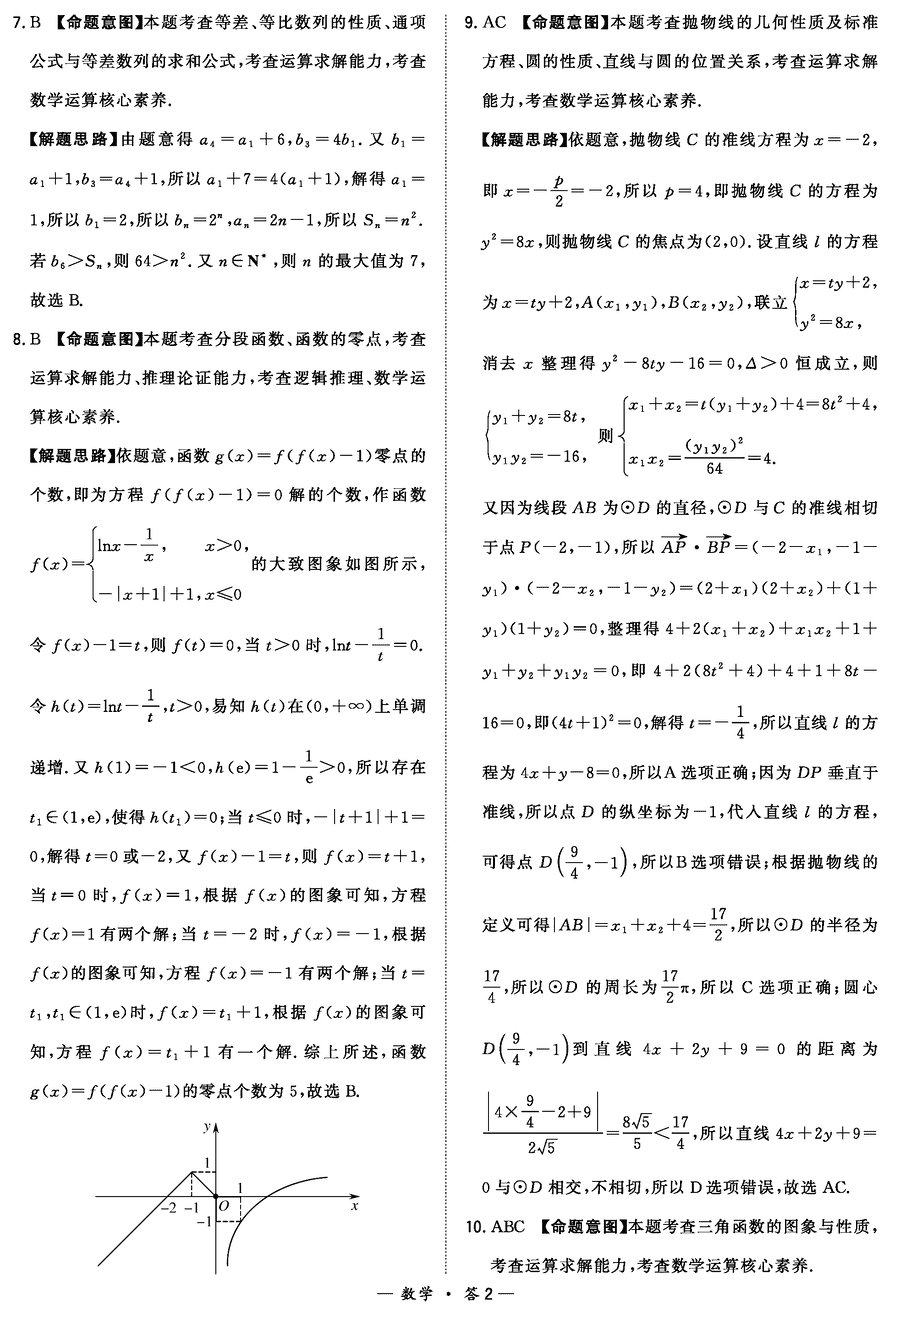 7. B 【命题意图】本题考查等差、等比数列的性质、通项
公式与等差数列的求和公式,考查运算求解能力,考查
数学运算核心素养.
【解题思路】由题意得 a₄=a₁+6,b₃=4b₁. 又 b₁=
a₁+1,b₃=a₄+1,所以 a₁+7=4(a₁+1),解得 a₁=
1,所以 b₁=2,所以 bₙ=2ⁿ,aₙ=2n-1,所以 Sₙ=n².
若 b₆>Sₙ,则 64>n². 又 n∈N*,则 n 的最大值为 7,
故选 B.
8. B 【命题意图】本题考查分段函数、函数的零点,考查
运算求解能力、推理论证能力,考查逻辑推理、数学运
算核心素养.
【解题思路】依题意,函数 g(x)=f(f(x)-1)零点的
个数,即为方程 f(f(x)-1)=0 解的个数,作函数
f(x)={lnx-1/x, x>0, -|x+1|+1,x≤0 的大致图象如图所示,
令 f(x)-1=t,则 f(t)=0,当 t>0 时,lnt-1/t=0.
令 h(t)=lnt-1/t,t>0,易知 h(t)在(0,+∞)上单调
递增. 又 h(1)=-1<0,h(e)=1-1/e>0,所以存在
t₁∈(1,e),使得 h(t₁)=0;当 t≤0 时,-|t+1|+1=
0,解得 t=0 或-2,又 f(x)-1=t,则 f(x)=t+1,
当 t=0 时,f(x)=1,根据 f(x)的图象可知,方程
f(x)=1 有两个解;当 t=-2 时,f(x)=-1,根据
f(x)的图象可知,方程 f(x)=-1 有两个解;当 t=
t₁,t₁∈(1,e)时,f(x)=t₁+1,根据 f(x)的图象可
知,方程 f(x)=t₁+1 有一个解. 综上所述,函数
g(x)=f(f(x)-1)的零点个数为 5,故选 B.
y
1
1
-2 -1 O x
-1
9. AC 【命题意图】本题考查抛物线的几何性质及标准
方程、圆的性质、直线与圆的位置关系,考查运算求解
能力,考查数学运算核心素养.
【解题思路】依题意,抛物线 C 的准线方程为 x=-2,
即 x=-p/2=-2,所以 p=4,即抛物线 C 的方程为
y²=8x,则抛物线 C 的焦点为(2,0). 设直线 l 的方程
为 x=ty+2,A(x₁,y₁),B(x₂,y₂),联立{x=ty+2, y²=8x,
消去 x 整理得 y²-8ty-16=0,Δ>0 恒成立,则
{y₁+y₂=8t, y₁y₂=-16, 则{x₁+x₂=t(y₁+y₂)+4=8t²+4, x₁x₂=(y₁y₂)²/64=4.
又因为线段 AB 为⊙D 的直径,⊙D 与 C 的准线相切
于点 P(-2,-1),所以 AP→·BP→=(-2-x₁,-1-
y₁)·(-2-x₂,-1-y₂)=(2+x₁)(2+x₂)+(1+
y₁)(1+y₂)=0,整理得 4+2(x₁+x₂)+x₁x₂+1+
y₁+y₂+y₁y₂=0,即 4+2(8t²+4)+4+1+8t-
16=0,即(4t+1)²=0,解得 t=-1/4,所以直线 l 的方
程为 4x+y-8=0,所以 A 选项正确;因为 DP 垂直于
准线,所以点 D 的纵坐标为-1,代入直线 l 的方程,
可得点 D(9/4,-1),所以 B 选项错误;根据抛物线的
定义可得|AB|=x₁+x₂+4=17/2,所以⊙D 的半径为
17/4,所以⊙D 的周长为17/2π,所以 C 选项正确;圆心
D(9/4,-1)到直线 4x+2y+9=0 的距离为
|4×9/4-2+9|/2√5=8√5/5<17/4,所以直线 4x+2y+9=
0 与⊙D 相交,不相切,所以 D 选项错误,故选 AC.
10. ABC 【命题意图】本题考查三角函数的图象与性质,
考查运算求解能力,考查数学运算核心素养.
— 数学 · 答 2 —